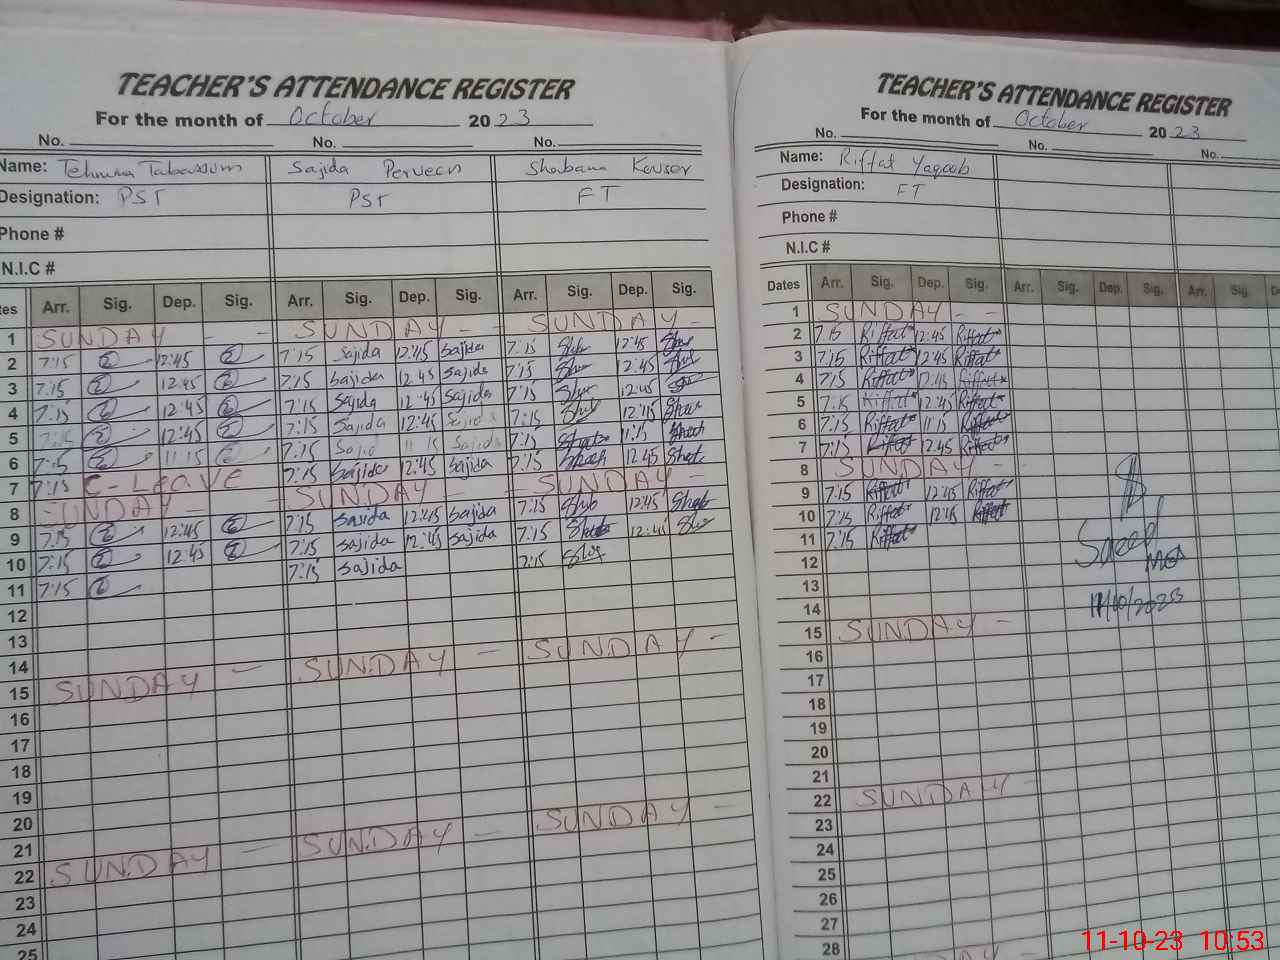 TEACHER'S ATTENDANCE REGISTER
For the month of October 2023
No. No. No.
Name: Tehmina Tabassum Sajida Perveen Shabana Kousor
Designation: PST PST FT
Phone #
N.I.C #
tes Arr. Sig. Dep. Sig. Arr. Sig. Dep. Sig. Arr. Sig. Dep. Sig.
1 SUNDAY - SUNDAY - - SUNDAY -
2 7:15 12:45 7:15 Sajida 12:45 Sajida 7:15 12:45
3 7:15 12:45 7:15 Sajida 12:45 Sajida 7:15 12:45
4 7:15 12:45 7:15 Sajida 12:45 Sajida 7:15 12:45
5 7:15 12:45 7:15 Sajida 12:45 Sajida 7:15 12:45
6 7:15 11:15 7:15 Sajid 11:15 Sajida 7:15 11:15
7 7:15 C-Leave 7:15 Sajida 12:45 Sajida 7:15 12:45
8 SUNDAY - SUNDAY - - SUNDAY -
9 7:15 12:45 7:15 Sajida 12:45 Sajida 7:15 12:45
10 7:15 12:45 7:15 Sajida 12:45 Sajida 7:15 12:45
11 7:15 7:15 Sajida 7:15
12
13
14
15 SUNDAY - SUNDAY - SUNDAY -
16
17
18
19
20
21
22 SUNDAY - SUNDAY - SUNDAY -
23
24
25
TEACHER'S ATTENDANCE REGISTER
For the month of October 2023
No. No. No.
Name: Riffat Yaqoob
Designation: FT
Phone #
N.I.C #
Dates Arr. Sig. Dep. Sig. Arr. Sig. Dep. Sig. Arr. Sig. D
1 SUNDAY - -
2 7:15 Riffat 12:45 Riffat
3 7:15 Riffat 12:45 Riffat
4 7:15 Riffat 12:45 Riffat
5 7:15 Riffat 12:45 Riffat
6 7:15 Riffat 11:15 Riffat
7 7:15 Riffat 12:45 Riffat
8 SUNDAY -
9 7:15 Riffat 12:45 Riffat
10 7:15 Riffat 12:45 Riffat
11 7:15 Riffat
12
13
14
Saeed
MEA
11/10/2023
15 SUNDAY -
16
17
18
19
20
21
22 SUNDAY -
23
24
25
26
27
28
11-10-23 10:53